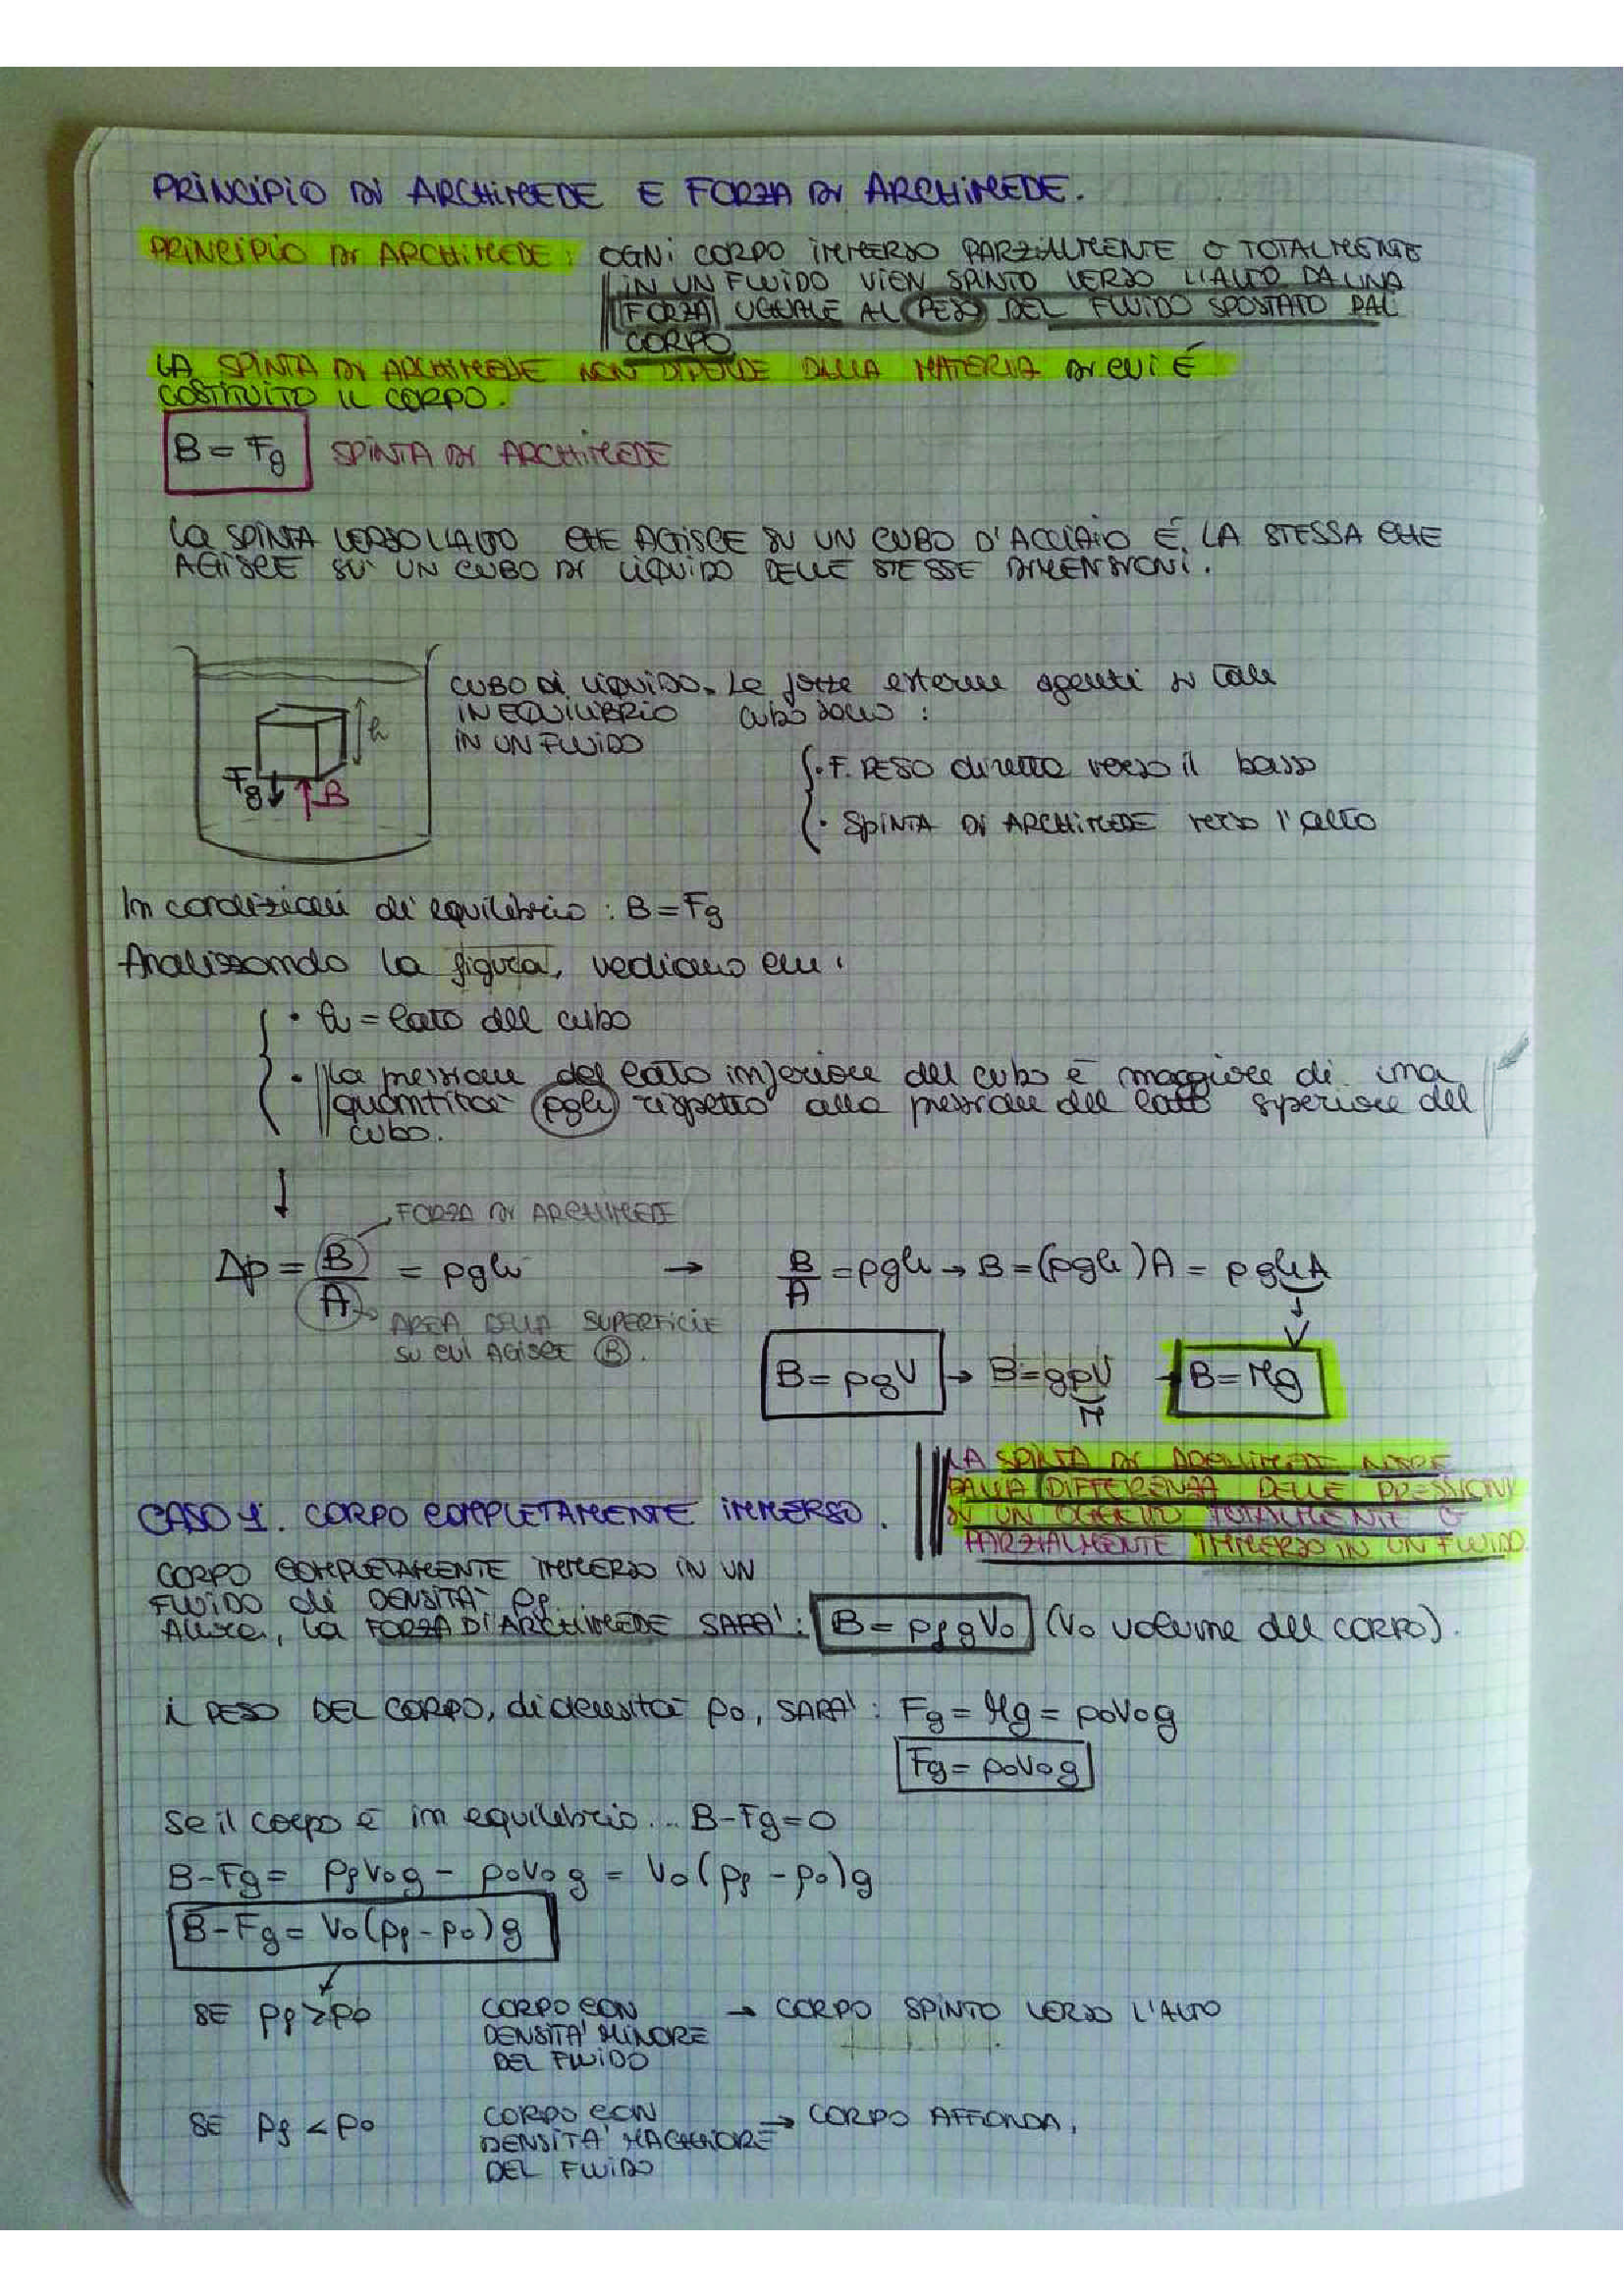 PRINCIPIO DI ARCHIMEDE E FORZA DI ARCHIMEDE.
PRINCIPIO DI ARCHIMEDE: OGNI CORPO IMMERSO PARZIALMENTE O TOTALMENTE
IN UN FLUIDO VIEN SPINTO VERSO L'ALTO DA UNA
FORZA UGUALE AL PESO DEL FLUIDO SPOSTATO DAL
CORPO
LA SPINTA DI ARCHIMEDE NON DIPENDE DALLA MATERIA DI CUI È
COSTITUITO IL CORPO.
B = Fg SPINTA DI ARCHIMEDE
LA SPINTA VERSO L'ALTO CHE AGISCE SU UN CUBO D'ACCIAIO È LA STESSA CHE
AGISCE SU UN CUBO DI LIQUIDO DELLE STESSE DIMENSIONI.
CUBO DI LIQUIDO. Le forze esterne agenti su tale
IN EQUILIBRIO cubo sono:
IN UN FLUIDO
h
· F. PESO diretta verso il basso
Fg B
· SPINTA DI ARCHIMEDE verso l'alto
In condizioni di equilibrio: B = Fg
Analizzando la figura, vediamo che:
· h = lato del cubo
· la pressione del lato inferiore del cubo è maggiore di una
quantità ρgh rispetto alla pressione del lato superiore del
cubo.
FORZA DI ARCHIMEDE
Δp = B/A = ρgh → B/A = ρgh → B = (ρgh)A = ρghA
AREA DELLA SUPERFICIE
SU CUI AGISCE B.
B = ρgV → B = gρV → B = Mg
M
LA SPINTA DI ARCHIMEDE NASCE
DALLA DIFFERENZA DELLE PRESSIONI
SU UN OGGETTO TOTALMENTE O
PARZIALMENTE IMMERSO IN UN FLUIDO.
CASO 1. CORPO COMPLETAMENTE IMMERSO.
CORPO COMPLETAMENTE IMMERSO IN UN
FLUIDO di DENSITÀ ρf.
Allora, la FORZA D'ARCHIMEDE SARA': B = ρf g V0 (V0 volume del CORPO).
IL PESO DEL CORPO, di densità ρ0, SARA': Fg = Mg = ρ0V0g
Fg = ρ0V0g
Se il corpo è in equilibrio... B-Fg=0
B-Fg = ρfV0g - ρ0V0g = V0(ρf - ρ0)g
B-Fg = V0(ρf - ρ0)g
SE ρf > ρ0 CORPO CON → CORPO SPINTO VERSO L'ALTO
DENSITA' MINORE
DEL FLUIDO
SE ρf < ρ0 CORPO CON → CORPO AFFONDA.
DENSITA' MAGGIORE
DEL FLUIDO